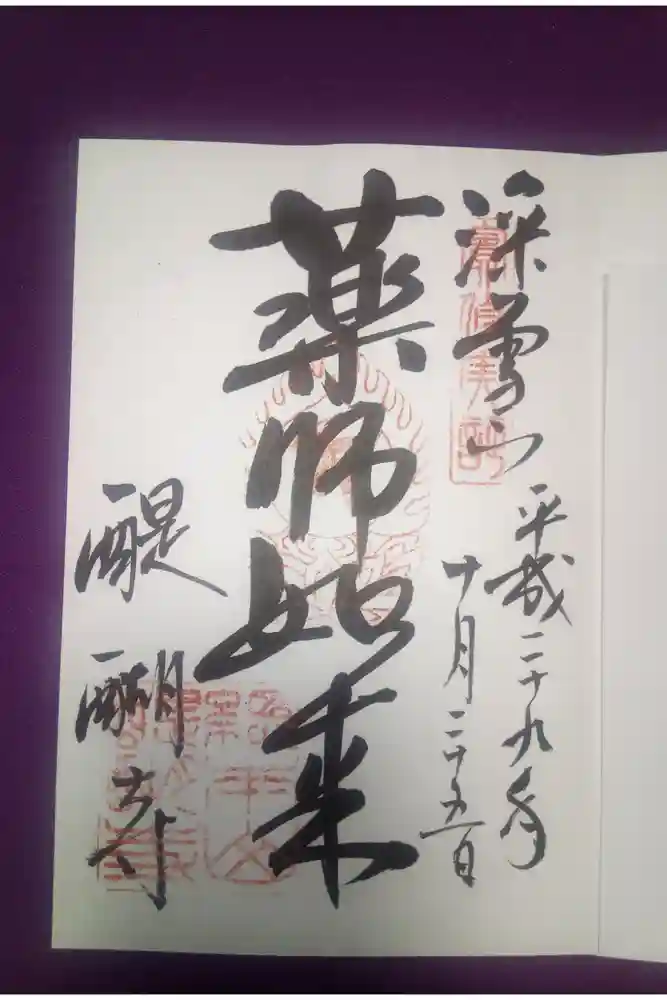 深雪山
平成二十九年
十月二十五日
薬師如来
醍醐寺